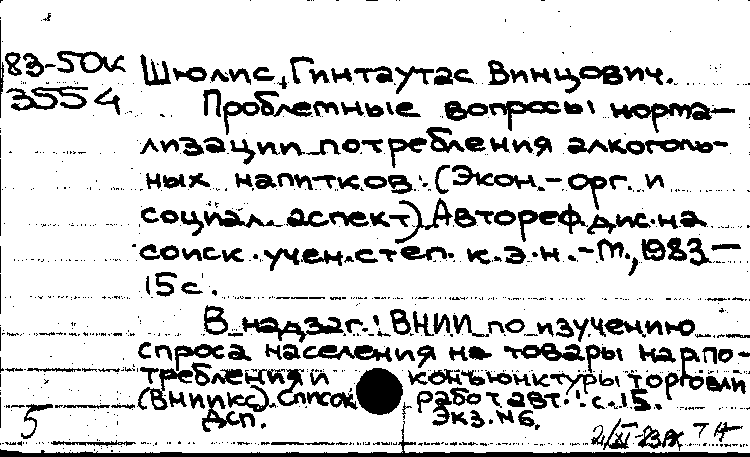 83-50к Шюлис, Гинтаутас Винцович.
3554 Проблемные вопросы норма-
лизации потребления алкоголь-
ных напитков: (Экон.-орг. и
социал. аспект) Автореф. дис. на
соиск. учен. степ. к.э.н. - М., 1983 -
15 с.
В надзаг.: ВНИИ по изучению
спроса населения на товары нар.по-
требления и конъюнктуры торговли
(ВНИИКС). Список работ авт.: с. 15.
5 Дсп. Экз. №6.